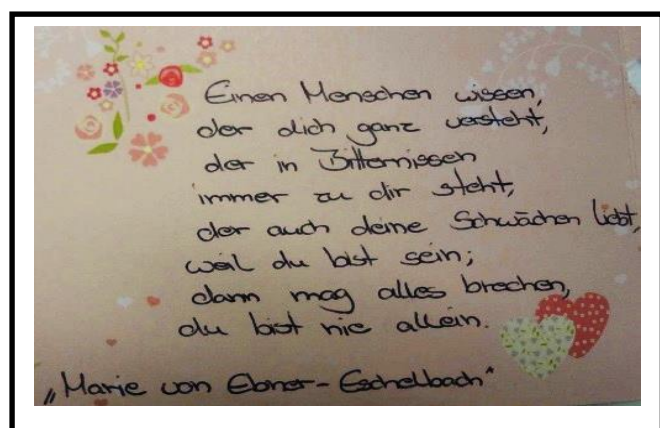 Einen Menschen wissen,
der dich ganz versteht,
der in Bitternissen
immer zu dir steht,
der auch deine Schwächen liebt,
weil du bist sein;
dann mag alles brechen,
du bist nie allein.
„Marie von Ebner-Eschelbach“